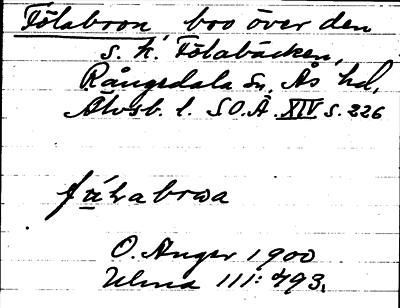 Fölabron bro över den
s. k. Fölabäcken,
Rångedala sn, Ås hd,
Älvsb. l. SOÄ. XIV s. 226
O. Anger 1900
Ulma 111: 493.